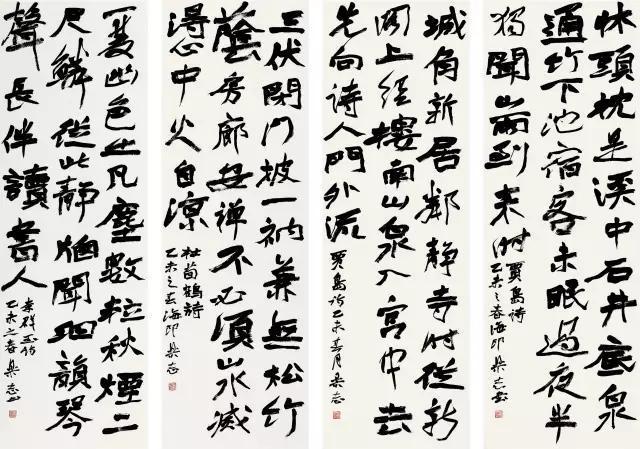 牀頭枕是溪中石井底泉
通竹下池宿客未眠過夜半
獨聞山雨到來時
賈島詩
乙未之春海印
城角新居鄰靜寺時從新
閣上經樓南山泉入宮中去
先向詩人門外流
賈島詩乙未春月
三伏閉門披一衲兼無松竹
蔭房廊安禪不必須山水滅
得心中火自涼
杜荀鶴詩
乙未之春海印
一雙幽色出凡塵數粒秋煙二
尺鱗從此靜窗聞細韻琴
聲長伴讀書人
李群玉詩
乙未之春